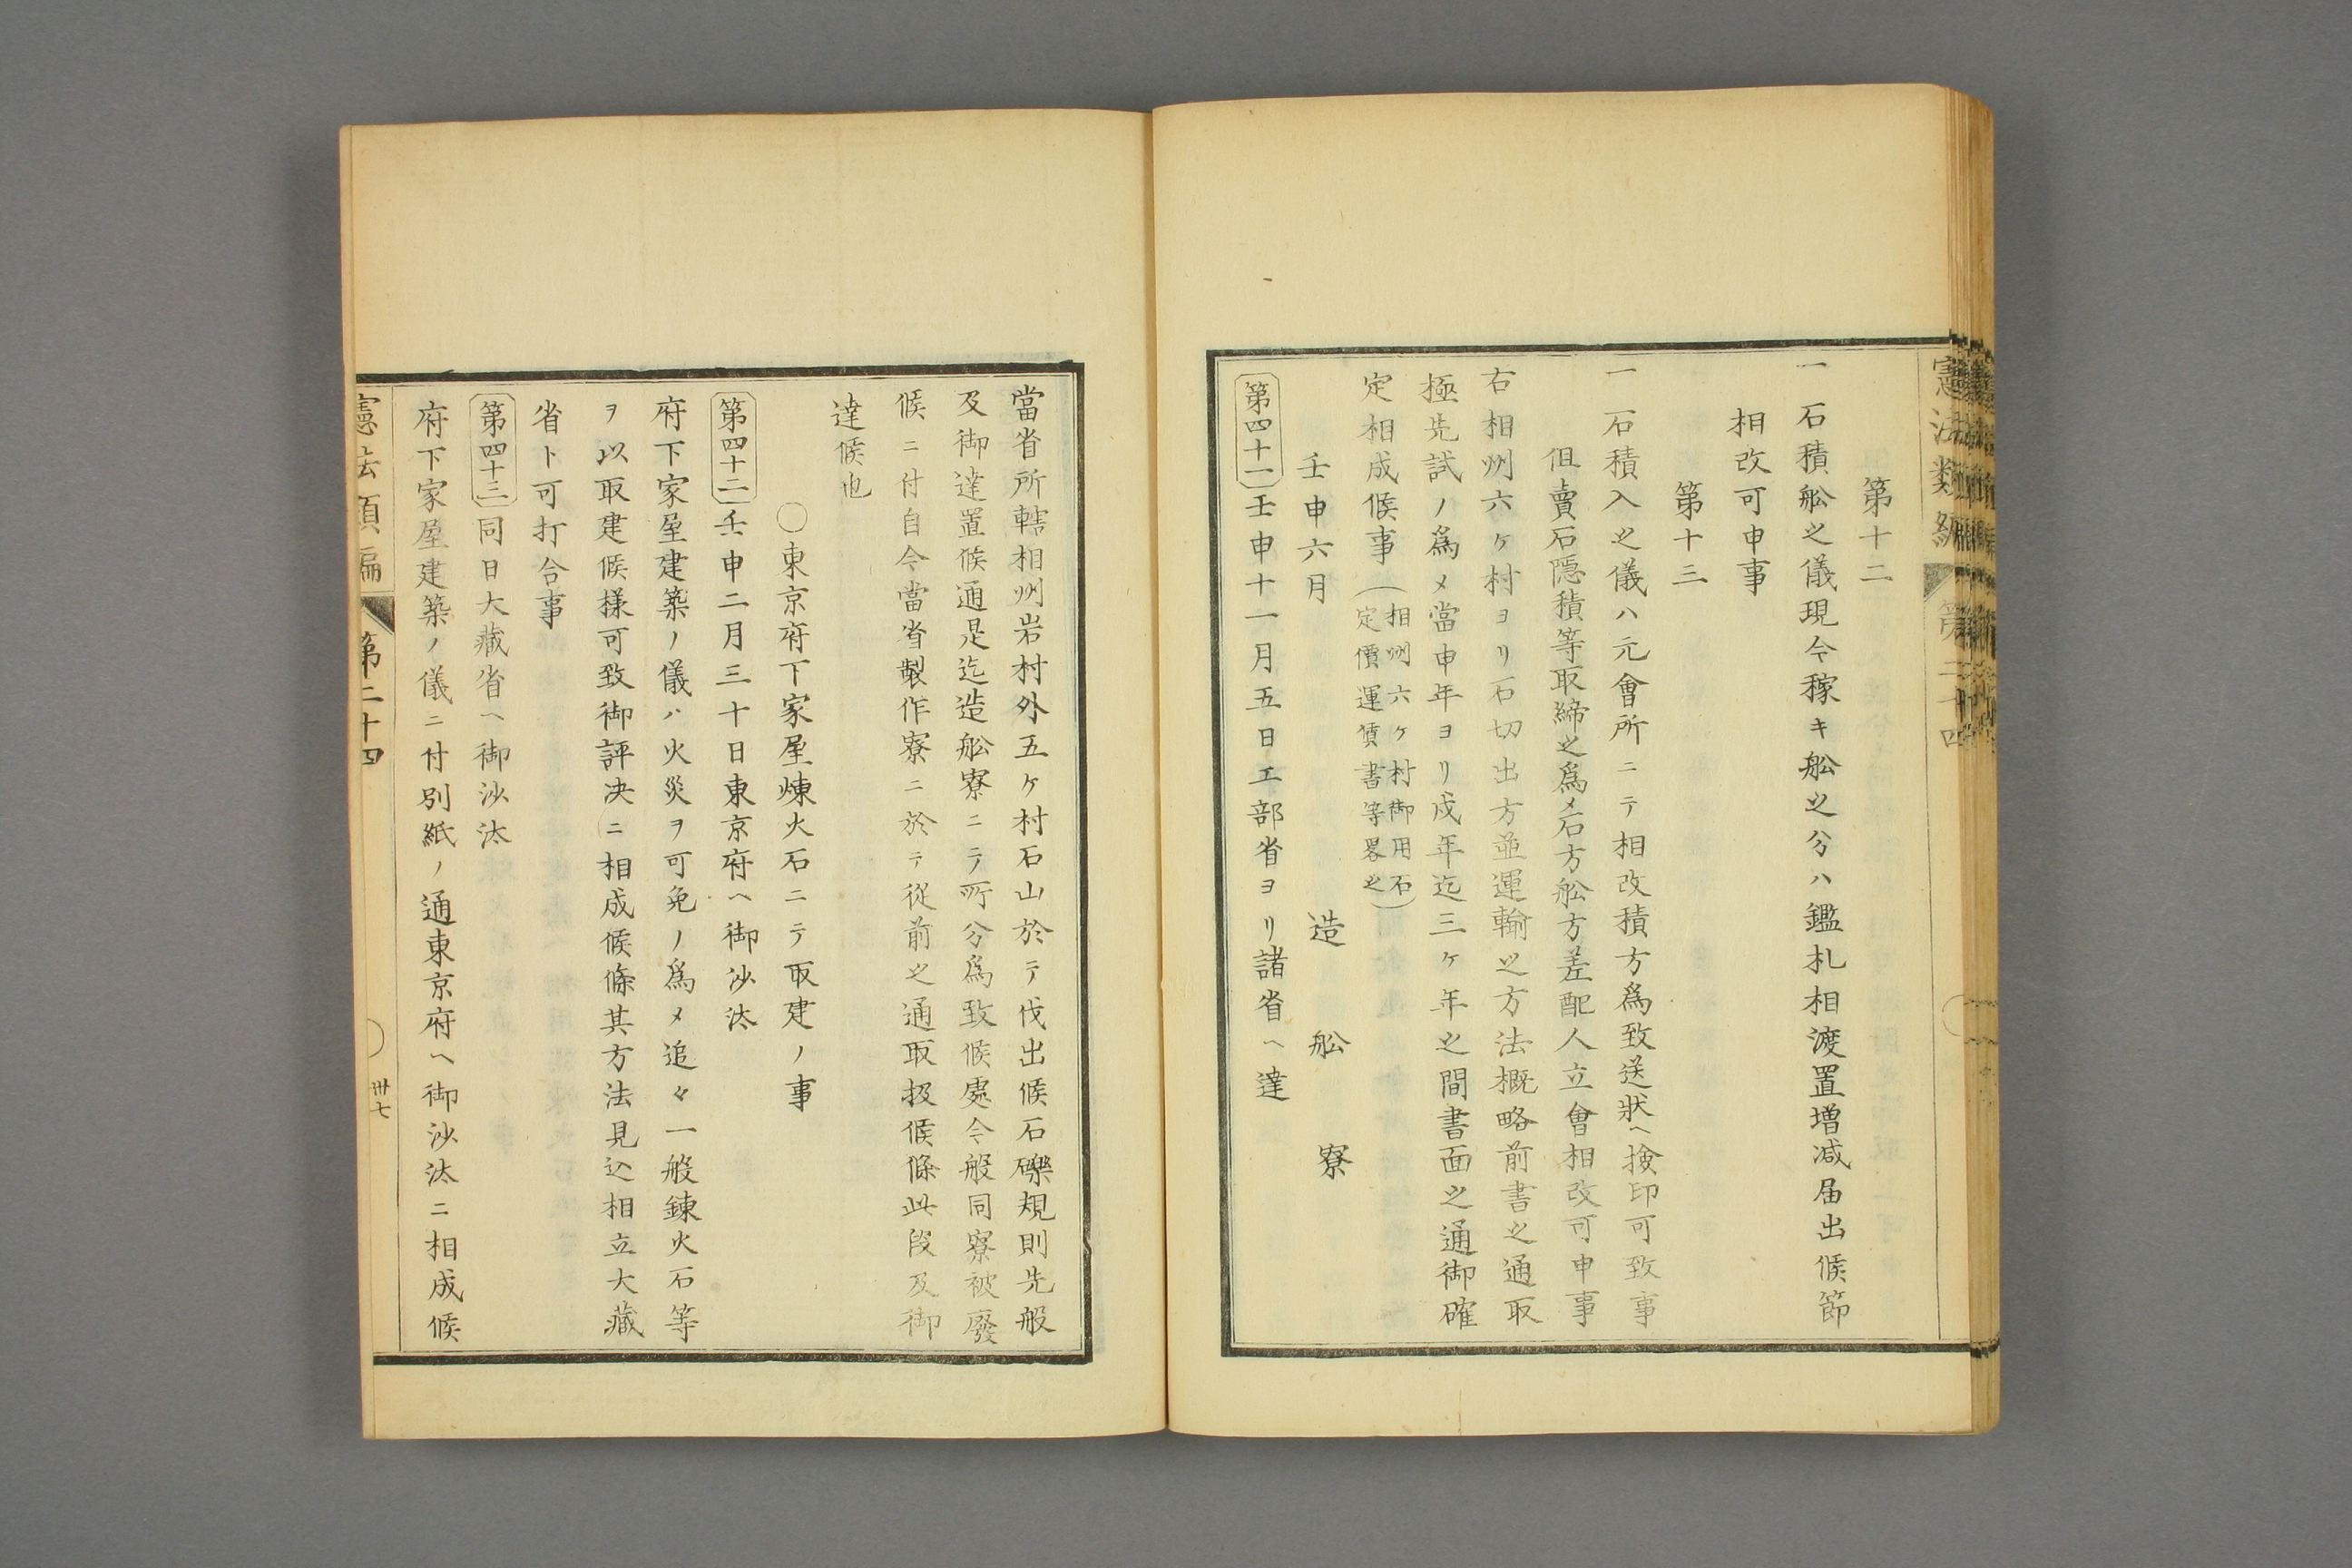 憲法類編
第二十四
第十二
一石積舩之儀現今稼キ舩之分ハ鑑札相渡置増减届出候節
相改可申事
第十三
一石積入之儀ハ元會所ニテ相改積方爲致送狀ヘ撿印可致事
但賣石隠積等取締之爲メ石方舩方差配人立會相改可申事
右相州六ケ村ヨリ石切出方並運輸之方法概略前書之通取
極先試ノ爲メ當申年ヨリ戌年迄三ケ年之間書面之通御確
定相成候事(相州六ケ村御用石
定價運賃書等畧之)
壬申六月
造舩寮
第四十一壬申十一月五日工部省ヨリ諸省ヘ達
當省所轄相州岩村外五ケ村石山於テ伐出候石礫規則先般
及御達置候通是迄造舩寮ニテ所分爲致候處今般同寮被廢
候ニ付自今當省製作寮ニ於テ從前之通取扱候條此段及御
達候也
○東京府下家屋煉火石ニテ取建ノ事
第四十二壬申二月三十日東京府ヘ御沙汰
府下家屋建築ノ儀ハ火災ヲ可免ノ爲メ追々一般鍊火石等
ヲ以取建候様可致御評决ニ相成候條其方法見込相立大藏
省ト可打合事
第四十三同日大藏省ヘ御沙汰
府下家屋建築ノ儀ニ付別紙ノ通東京府ヘ御沙汰ニ相成候
憲法類編
第二十四
卅七